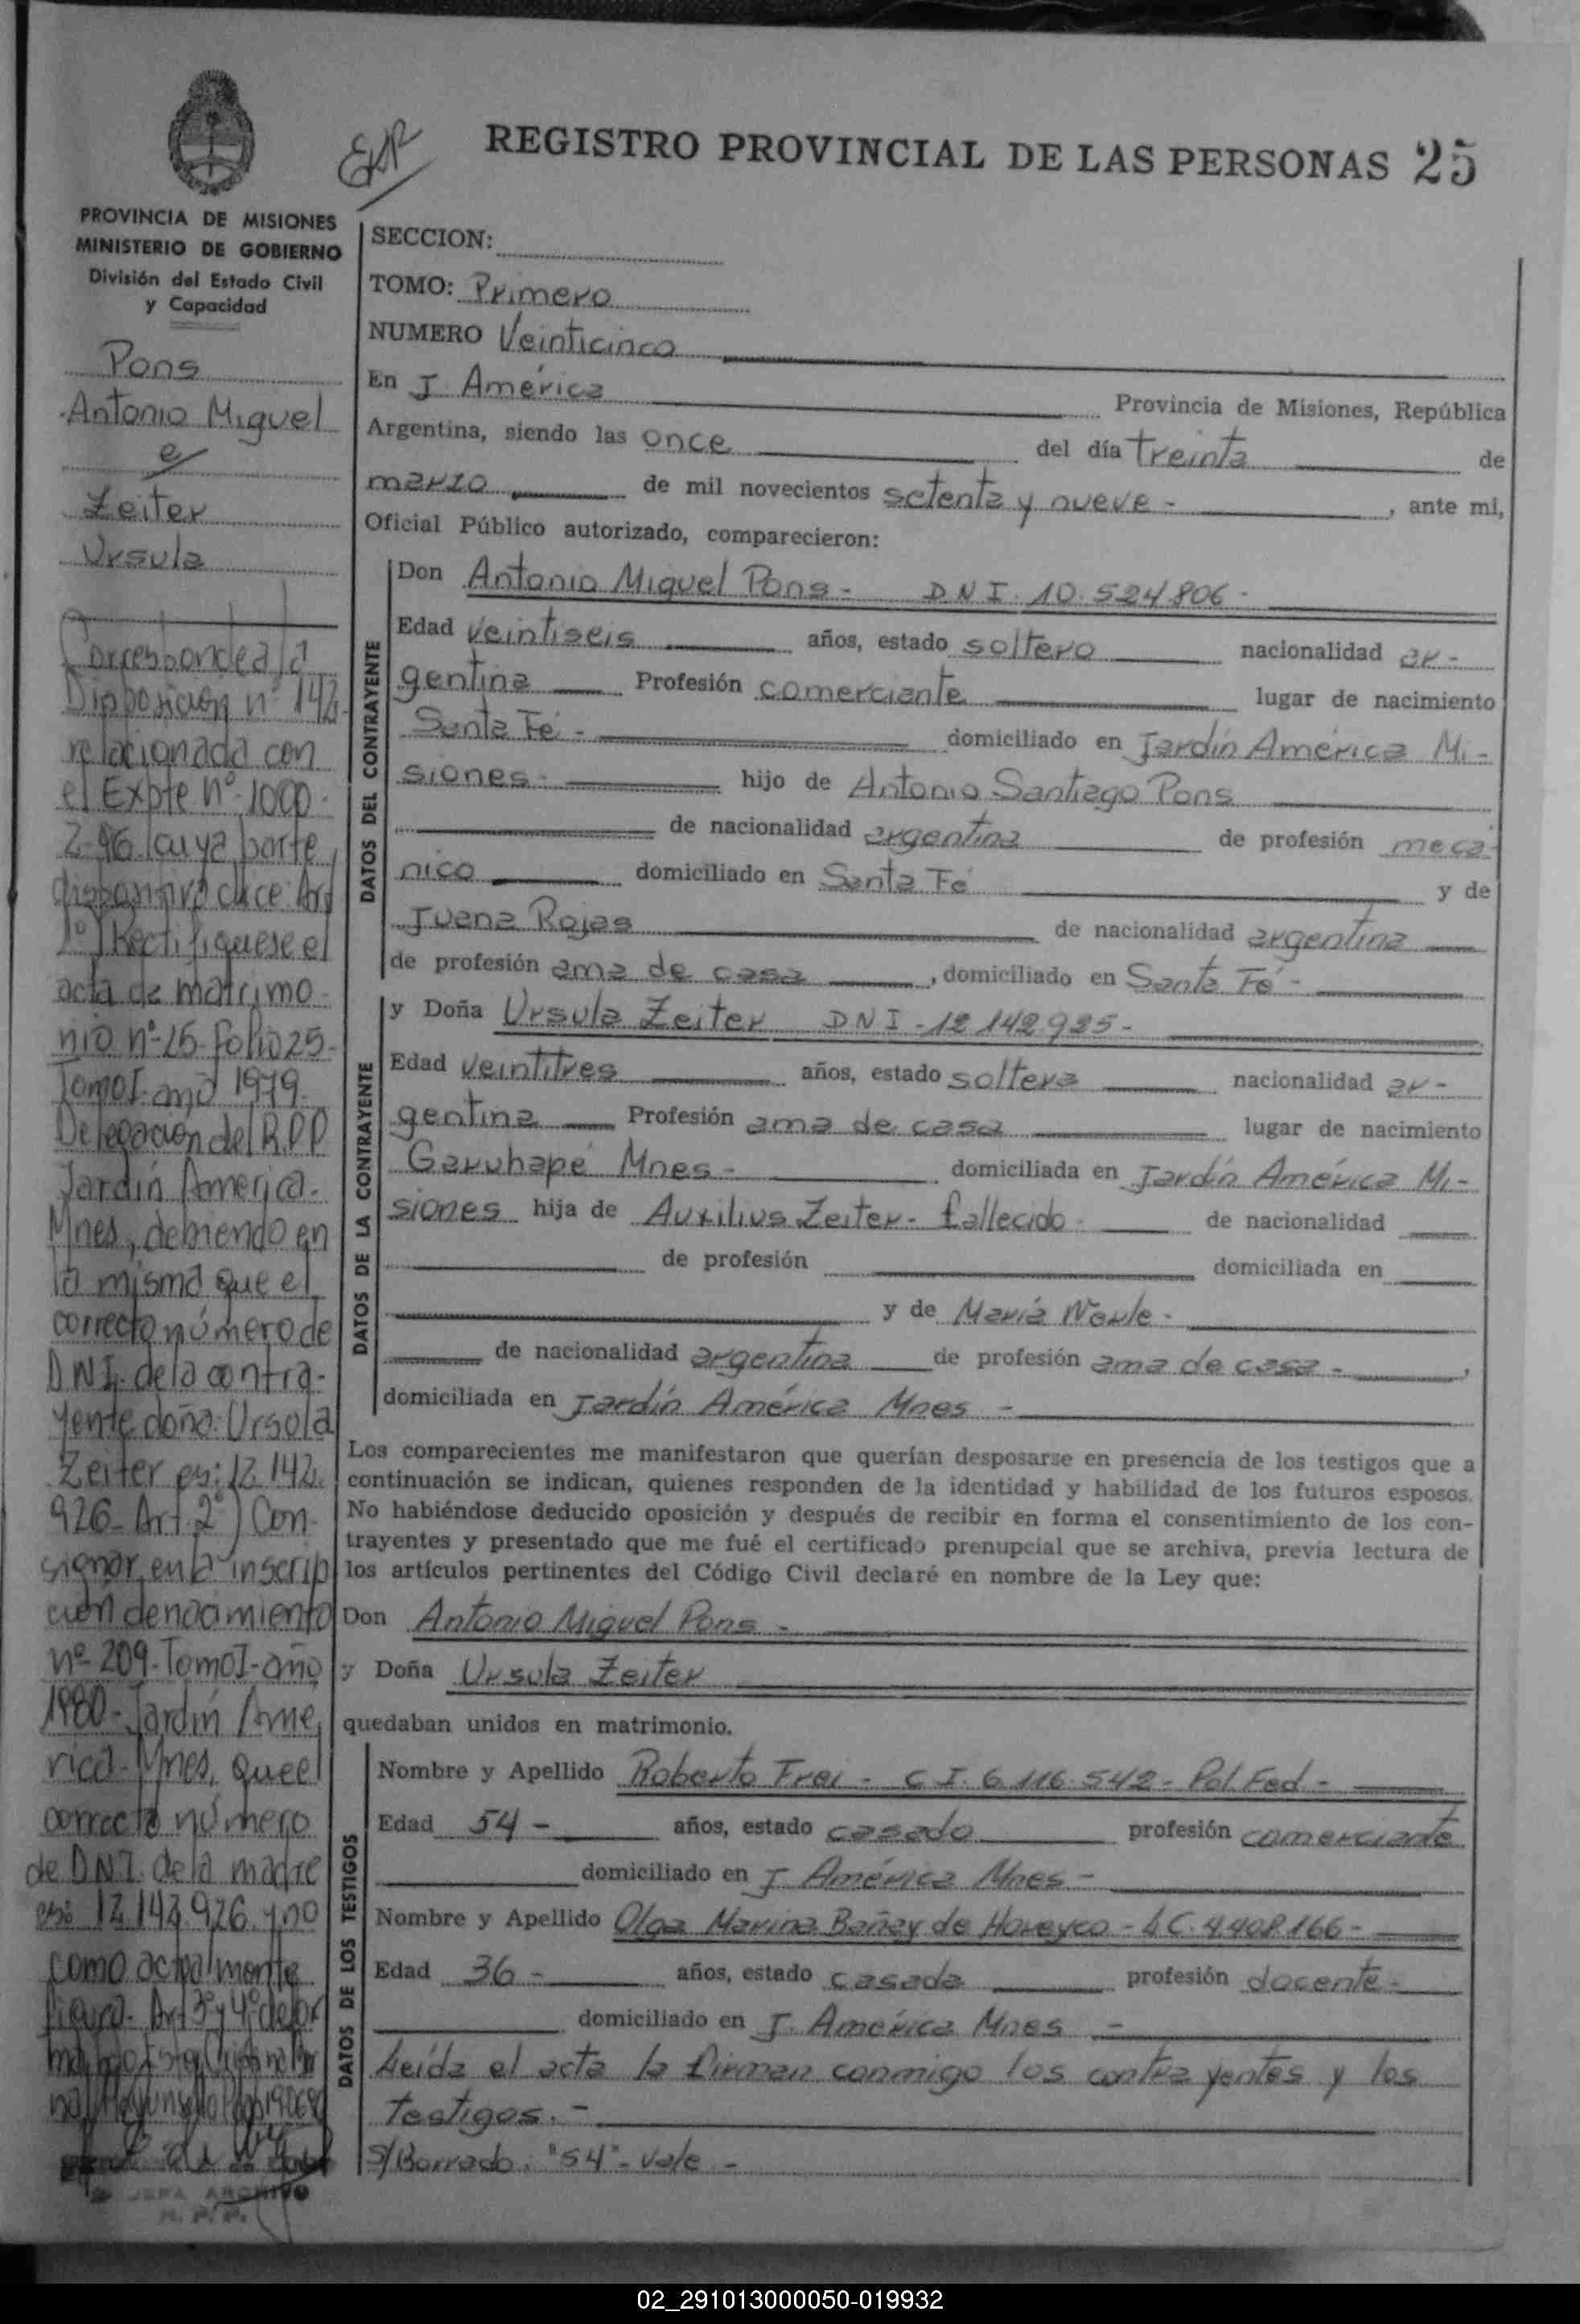 REGISTRO PROVINCIAL DE LAS PERSONAS 25
PROVINCIA DE MISIONES
MINISTERIO DE GOBIERNO
División del Estado Civil
y Capacidad
Pons
Antonio Miguel
e
Zeiter
Ursula
Corresponde a la
Disposición nº 142
relacionada con
el Expte nº 1000-
2-96 cuya parte
dispositiva dice: Art
1º) Rectifiquese el
acta de matrimo-
nio nº 25- folio 25-
Tomo I- año 1979-
Delegación del R.P.P
Jardín América-
Mnes, debiendo en
la misma que el
correcto número de
D N I. de la contra-
yente doña: Ursula
Zeiter es: 12.142.
926- Art. 2º) Con-
signar, en la inscrip
ción de nacimiento
nº 209- Tomo I- año
1980- Jardín Amé
rica- Mnes, que el
correcto número
de D.N.I. de la madre
es: 12.142.926. y no
como actualmente
figura- Art 3º y 4º de for
JEFA ARCHIVO
R. P. P.
SECCION:
TOMO: Primero
NUMERO Veinticinco
En J. América Provincia de Misiones, República
Argentina, siendo las once del día treinta de
marzo de mil novecientos setenta y nueve - , ante mi,
Oficial Público autorizado, comparecieron:
DATOS DEL CONTRAYENTE
Don Antonio Miguel Pons - D N I. 10.524.806 -
Edad veintiseis años, estado soltero nacionalidad ar-
gentina Profesión comerciante lugar de nacimiento
Santa Fé - domiciliado en Jardín América Mi-
siones - hijo de Antonio Santiago Pons
de nacionalidad argentina de profesión mecá
nico domiciliado en Santa Fé y de
Juana Rojas de nacionalidad argentina
de profesión ama de casa , domiciliado en Santa Fé -
DATOS DE LA CONTRAYENTE
y Doña Ursula Zeiter D N I - 12.142.925 -
Edad veintitres años, estado soltera nacionalidad ar-
gentina Profesión ama de casa lugar de nacimiento
Garuhapé Mnes - domiciliada en Jardín América Mi-
siones hija de Auxilius Zeiter - fallecido - de nacionalidad
de profesión domiciliada en
y de María Warle -
de nacionalidad argentina de profesión ama de casa - ,
domiciliada en Jardín América Mnes -
Los comparecientes me manifestaron que querían desposarse en presencia de los testigos que a
continuación se indican, quienes responden de la identidad y habilidad de los futuros esposos.
No habiéndose deducido oposición y después de recibir en forma el consentimiento de los con-
trayentes y presentado que me fué el certificado prenupcial que se archiva, previa lectura de
los artículos pertinentes del Código Civil declaré en nombre de la Ley que:
Don Antonio Miguel Pons -
y Doña Ursula Zeiter
quedaban unidos en matrimonio.
DATOS DE LOS TESTIGOS
Nombre y Apellido Roberto Frei - C I. 6.116.542 - Pol. Fed -
Edad 54 - años, estado casado profesión comerciante
domiciliado en J América Mnes -
Nombre y Apellido Olga Marina Bañay de Hoveyco - L C. 4.408.166 -
Edad 36 - años, estado casada profesión docente -
domiciliado en J. América Mnes -
Leída el acta la firman conmigo los contrayentes y los
testigos. -
S/Borrado: "54" - vale -
02_291013000050-019932